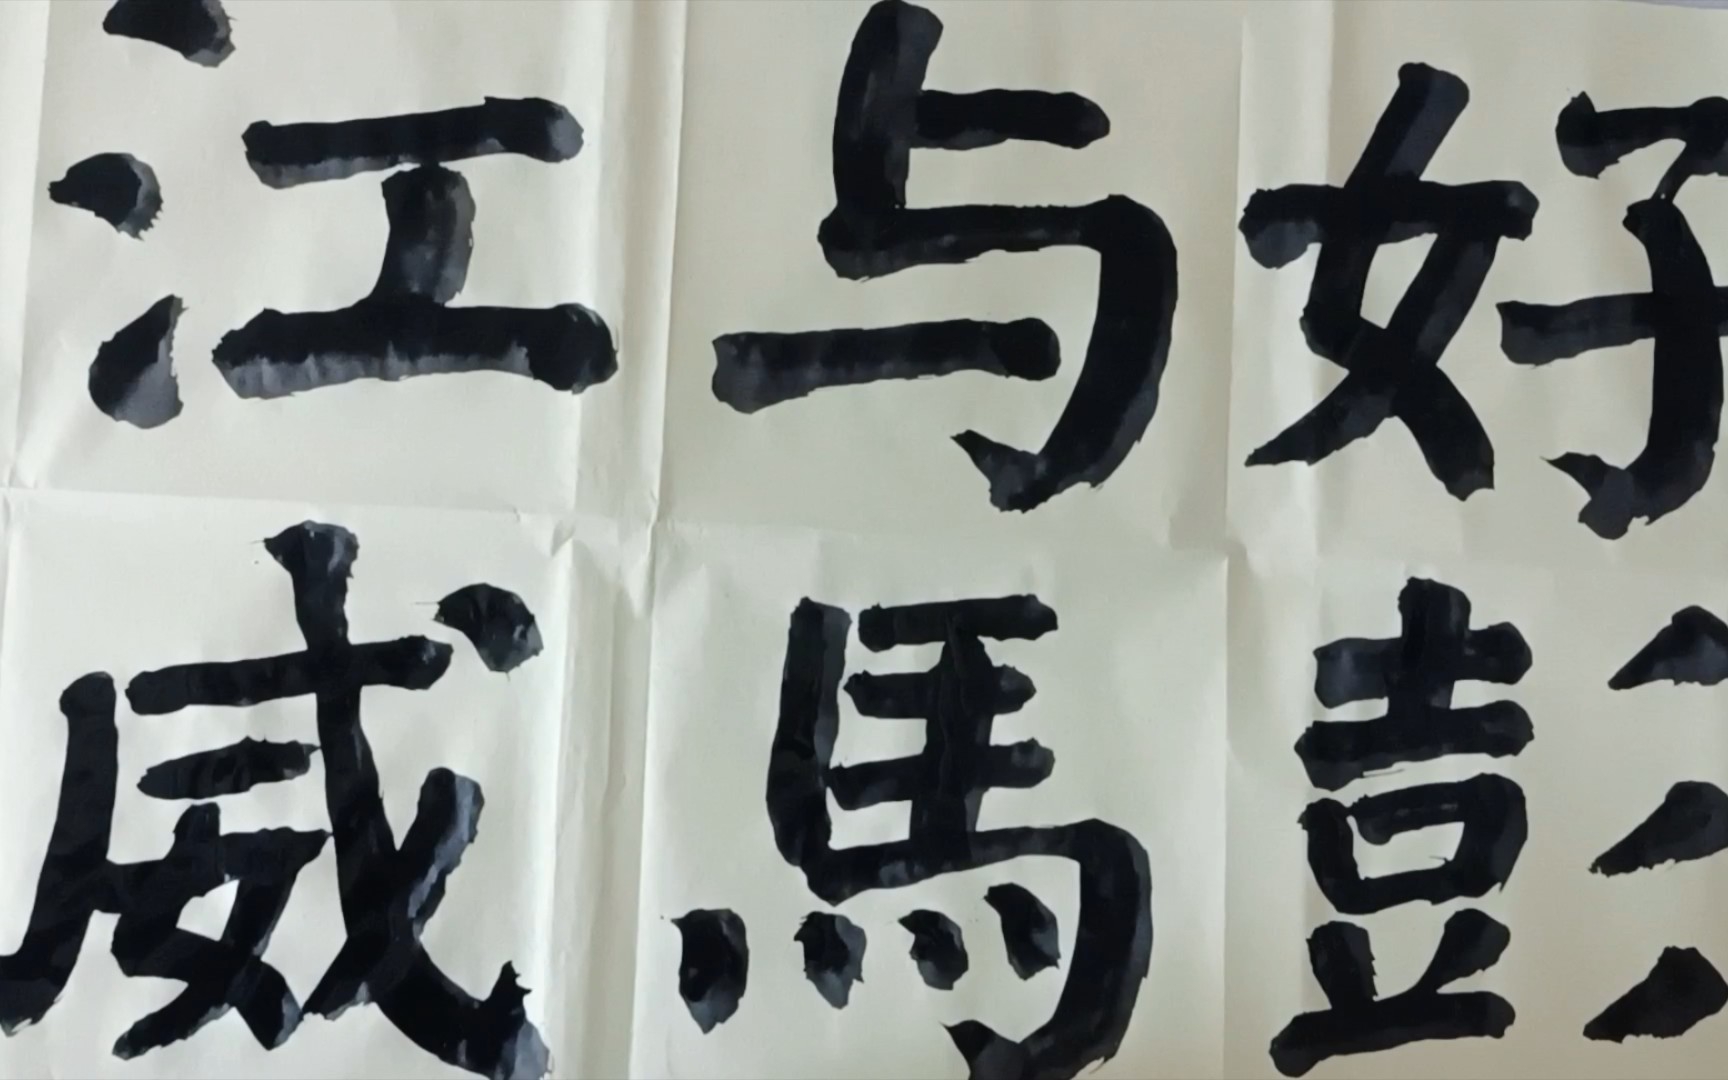 江与好
威馬彭